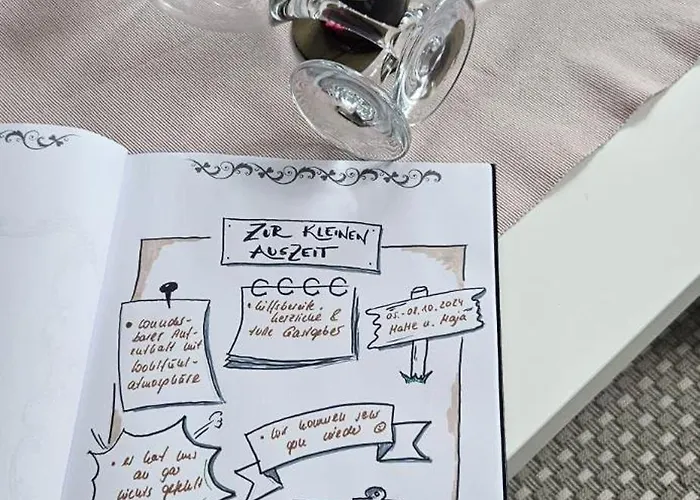 ZUR KLEINEN
AUSZEIT
• wunder-
barer Auf-
enthalt mit
Wohlfühl-
atmosphäre
• hilfsbereite,
herzliche &
tolle Gastgeber
05.-08.10.2024
Malte u. Maja
• wir kommen sehr
gern wieder ☺
• es hat uns
an gar
nichts gefehlt